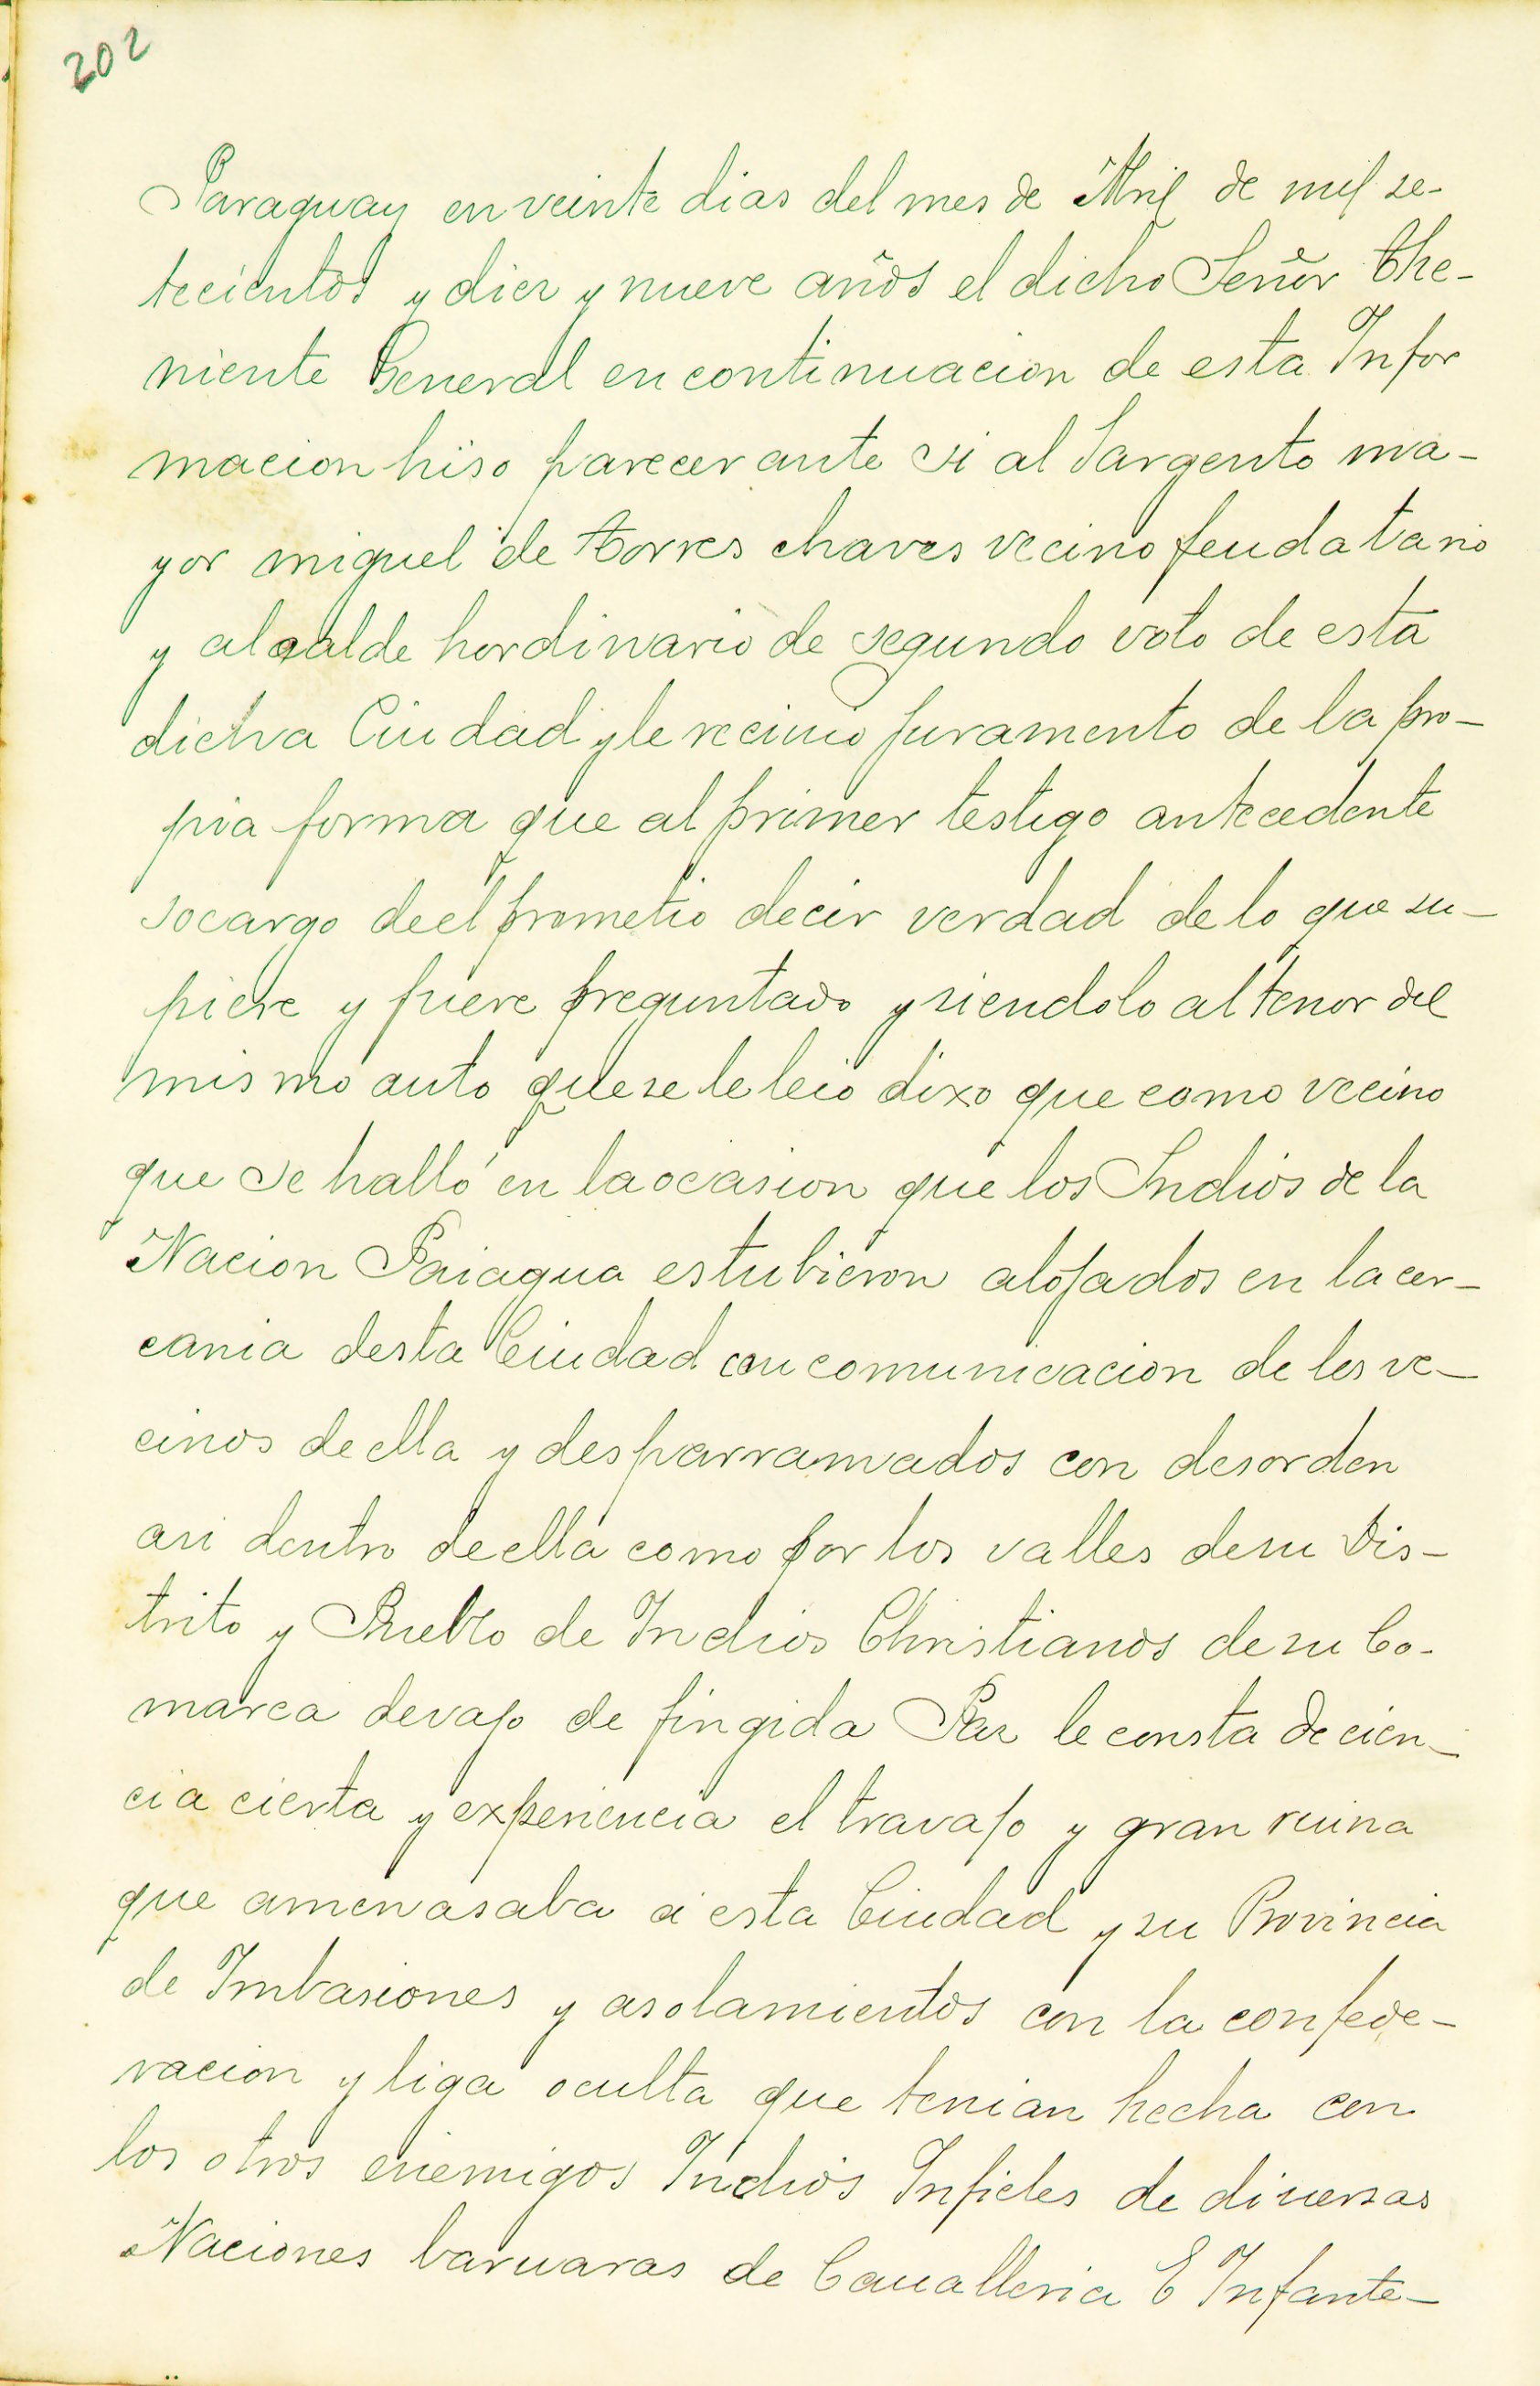 202
Paraguay en veinte dias del mes de Abril de mil se-
tecientos y diez y nueve años el dicho Señor The-
niente General en continuacion de esta Infor
macion hiso parecer ante si al Sargento ma-
yor miguel de torres chaves vecino feudatario
y alcalde hordinario de segundo voto de esta
dicha Ciudad y le reciuio juramento de la pro-
pia forma que al primer testigo antecedente
socargo de el prometio decir verdad de lo que su-
piere y fuere preguntado y siendolo al tenor del
mismo auto que se le leio dixo que como vecino
que se halló en la ocasion que los Indios de la
Nacion Paiagua estubieron alojados en la cer-
cania desta Ciudad con comunicacion de los ve-
cinos de ella y desparramados con desorden
asi dentro de ella como por los valles de su Dis-
trito y Pueblo de Indios Christianos de su Co-
marca devajo de fingida Paz le consta de cien-
cia cierta y experiencia el travajo y gran ruina
que amenasaba a esta Ciudad y su Provincia
de Imbasiones y asolamientos con la confede-
racion y liga oculta que tenian hecha con
los otros enemigos Indios Infieles de diuersas
Naciones baruaras de Caualleria E Infante-